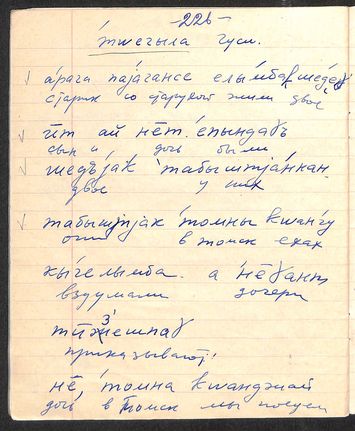 -226-
тшечыла гуси.
а́рага паjа́гансе елы́мба шедеɣ
старик со старухой жили двое
ӣт ай нēт. е́пындаɣъ
сын и дочь были
шедъjак табыштjа́ннан
двое у них
табыштjак то́мны квангу
они в Томск ехат
кы́гелымба. а нēɣант
вздумали дочери
приказывают:
нē, то́мна кванджай
дочь в Томск мы поедем